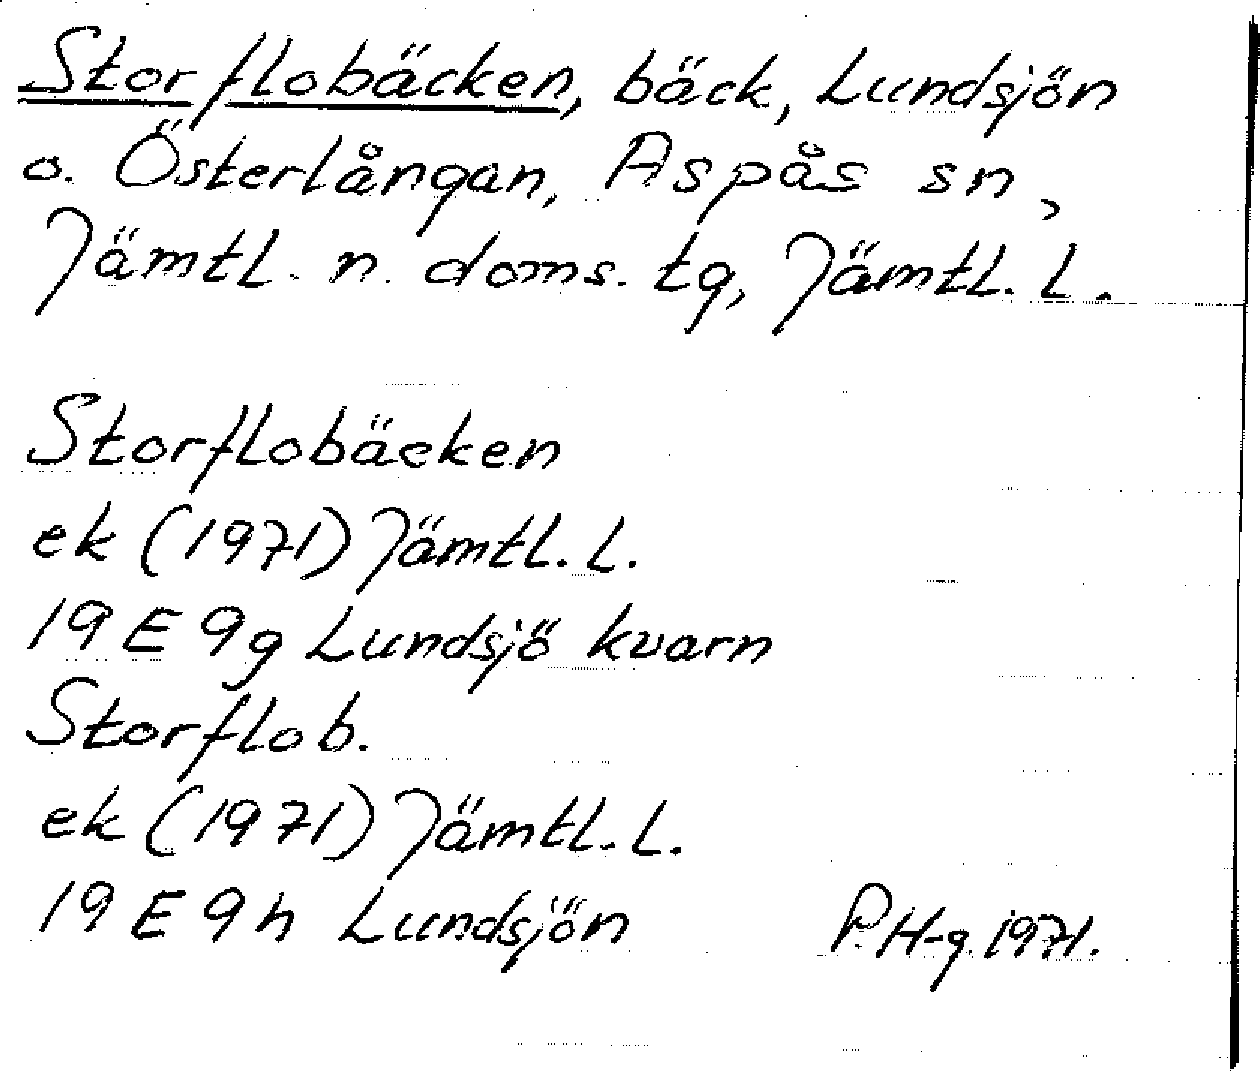 Storflobäcken, bäck, Lundsjön
o. Österlångan, Aspås sn,
Jämtl. n. doms. tg, Jämtl. l.
Storflobäcken
ek (1971) Jämtl. l.
19 E 9g Lundsjö kvarn
Storflob.
ek (1971) Jämtl. l.
19 E 9h Lundsjön
P. H-g. 1971.